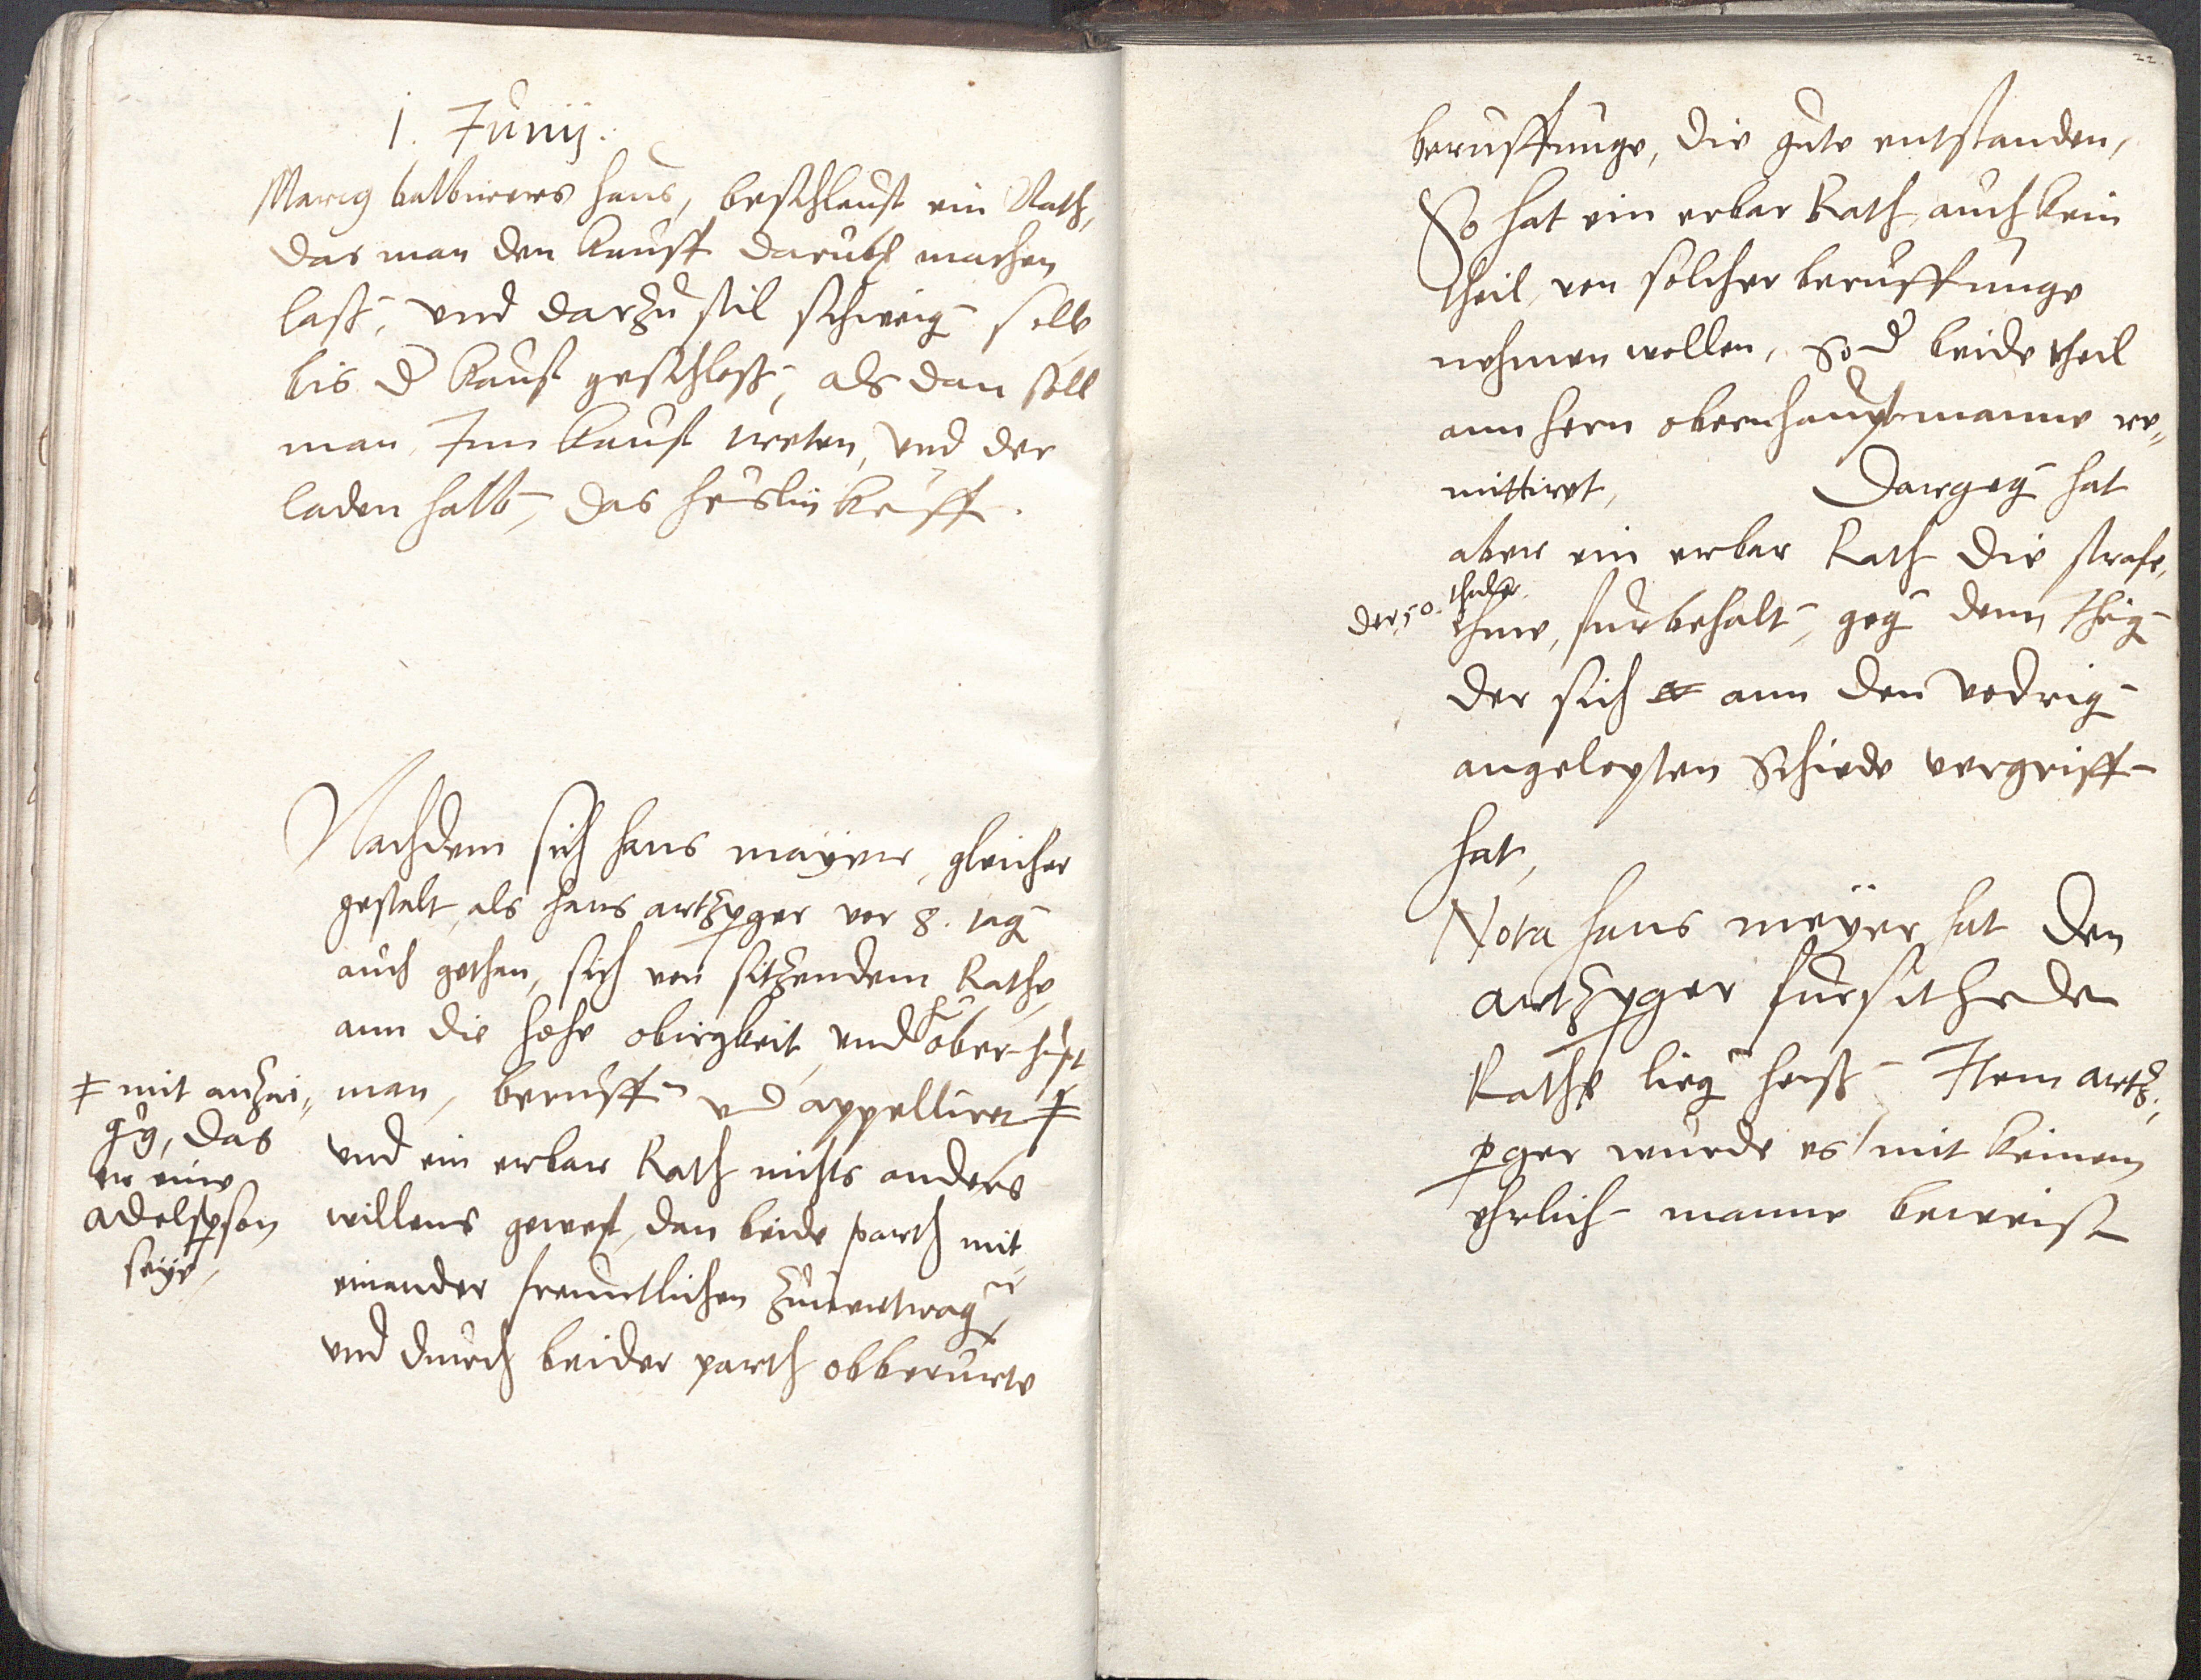 1. Junij.
Marcg balbirers haus, beschleust ein Rath,
das man den kauff darüber machen
lass, und darzu stil schweig soll
bis der kauff geschloss, als dan soll
man Inn kauff treten, und der
laden halb, das heuslin keuff.
Nachdem sich hans mayer, gleicher
gestalt, als hans artzperger vor 8. tag
auch gethan, sich von sitzendem Rathe,
ann die hohe obirgkeit, und h. oberhupt
man, beruffen und appelliret ‡
und ein erbar Rath nichts anders
willens gewest, dan beide parth mit
einander freuntlichen zuuertragen,
und durch beider parth obberurte
‡ mit anzai„
gung, das
er eine
adelsperson
seye,
22.
beruffunge, die gute entstanden,
So hat ein erbar Rath, auch kein
theil, von solcher beruffunge
nehmen wollen, Sonder beide theil
ann hern obernhauptmanne re„
mittiret, Dargeg hat
aber ein erbar Rath die strafe,
der 50. thaler
ihme, furbehalt, geg denn Jhenig
der sich ann den vodrig
angelopten Schiede vergriff
hat,
Nota hans meyer hat den
artzperger fur sitzenden
Rathe lieg heiss Item artz„
perger wurde es mit keinem
ehrlich manne beweisen